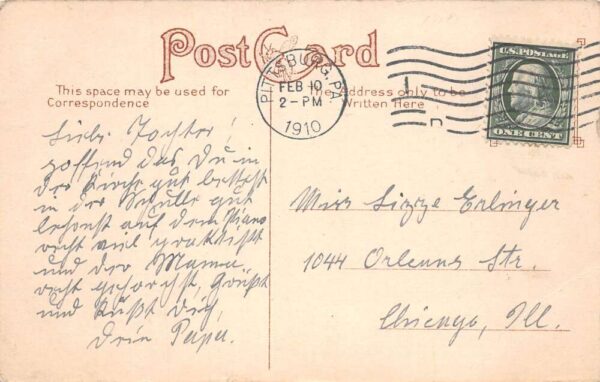 Post Card
This space may be used for
Correspondence
The Address only to be
Written Here
PITTSBURG, PA.
FEB 10
2-PM
1910
U.S. POSTAGE
ONE CENT
Liebe Tochter!
hoffend das Du in
der Kirche gut betest
in der Schulle gut
lehrnst auf dem Piano
recht viel praktisist
und der Mama
recht gehorchst, Grüßt
und Küßt Dich,
Dein Papa.
Miss Lizzye Erlinger
1044 Orleans Str.
Chicago, Ill.